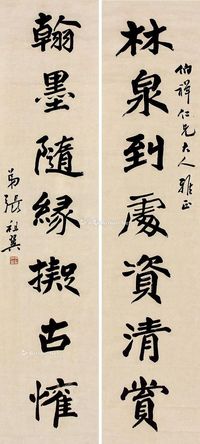 伯祥仁兄大人雅正
林泉到處資清賞
翰墨隨緣擬古懽
弟張祖翼